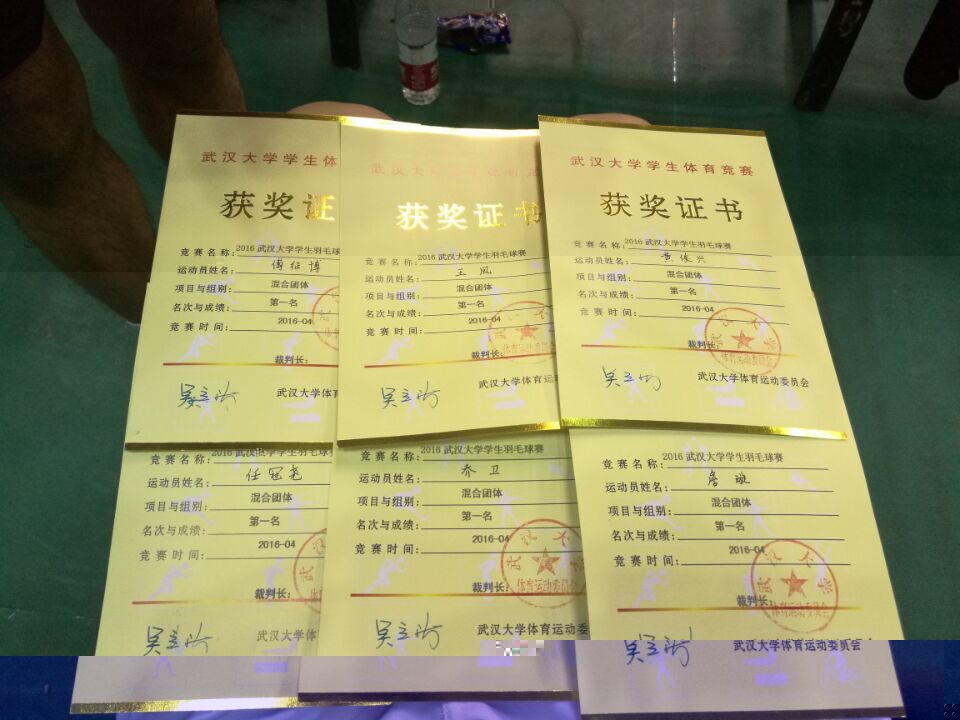 武汉大学学生体
获奖证
竞赛名称: 2016 武汉大学学生羽毛球
运动员姓名:
项目与组别: 混合团体
名次与成绩: 第一名
竞赛时间: 2016-04
裁判长:
武汉大学体育运
武汉大学学生体育竞
获奖证书
竞赛名称: 2016 武汉大学学生羽毛球赛
运动员姓名: 王凤
项目与组别: 混合团体
名次与成绩: 第一名
竞赛时间: 2016-04
裁判长:
武汉大学体育运动
武汉大学学生体育竞赛
获奖证书
竞赛名称: 2016 武汉大学学生羽毛球赛
运动员姓名: 黄俊兴
项目与组别: 混合团体
名次与成绩: 第一名
竞赛时间: 2016-04
裁判长:
武汉大学
体育运动委员会
武汉大学体育运动委员会
竞赛名称: 2016 武汉大学学生羽毛球赛
运动员姓名: 任冠尧
项目与组别: 混合团体
名次与成绩: 第一名
竞赛时间: 2016-04
裁判长:
武汉大学体
竞赛名称: 2016 武汉大学学生羽毛球赛
运动员姓名: 乔卫
项目与组别: 混合团体
名次与成绩: 第一名
竞赛时间: 2016-04
裁判长:
体育运动委员会
武汉大学体育运动委
竞赛名称: 2016 武汉大学学生羽毛球赛
运动员姓名:
项目与组别: 混合团体
名次与成绩: 第一名
竞赛时间: 2016-04
裁判长:
武汉大学
体育运动委员会
武汉大学体育运动委员会